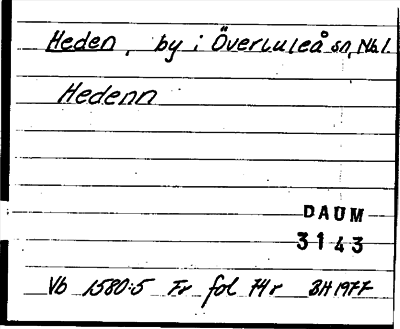 Heden, by i Överluleå sn, Nb.l.
Hedenn
DAUM
3143
Vb 1580:5 Fr fol 74r BH 1977